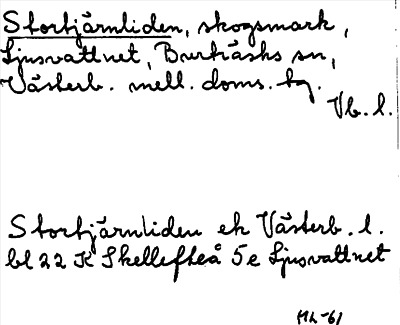 Stortjärnliden, skogsmark,
Ljusvattnet, Burträsks sn,
Västerb. mell. doms. bg.
Vb. l.
Stortjärnliden ek Västerb. l.
bl 22 K Skellefteå 5e Ljusvattnet
ML-61